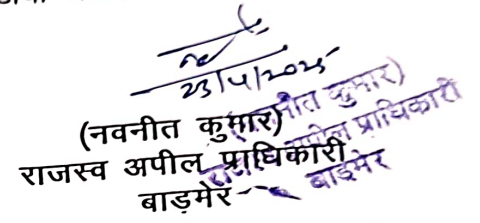 23/4/2025
(नवनीत कुमार)
राजस्व अपील प्राधिकारी
बाड़मेर
(नवनीत कुमार)
राजस्व अपील प्राधिकारी
बाड़मेर